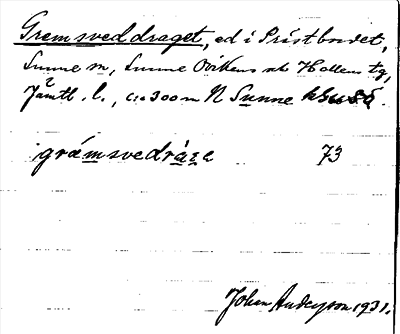 Gremsveddraget, ed i Prästbordet,
Sunne sn, Sunne Oviken och Hallens tg,
Jämtl. l., c:a 300 m N Sunne
grámsvedráze 73
Johan Anderson 1931.